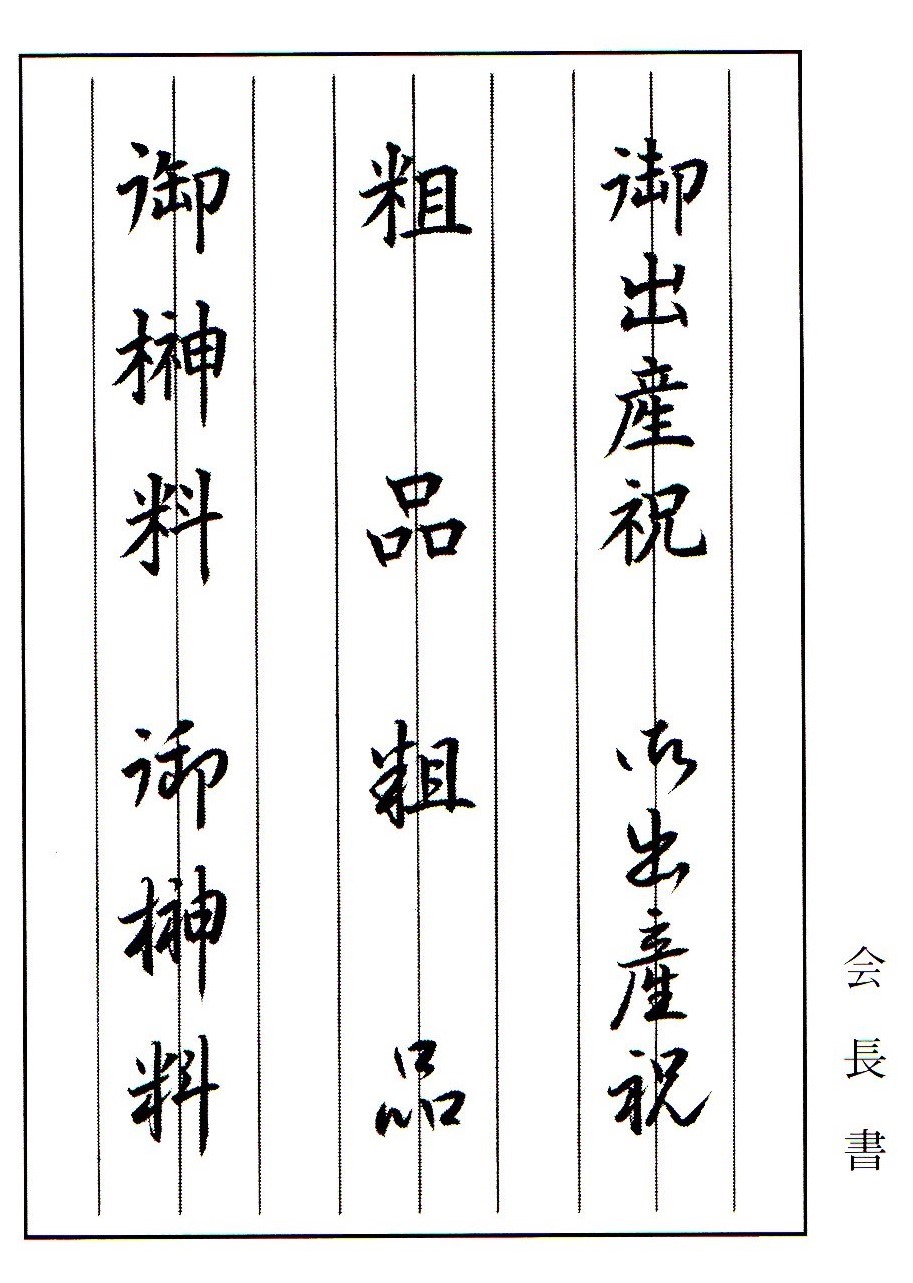 会長書
御出産祝 御出産祝
粗品 粗品
御榊料 御榊料